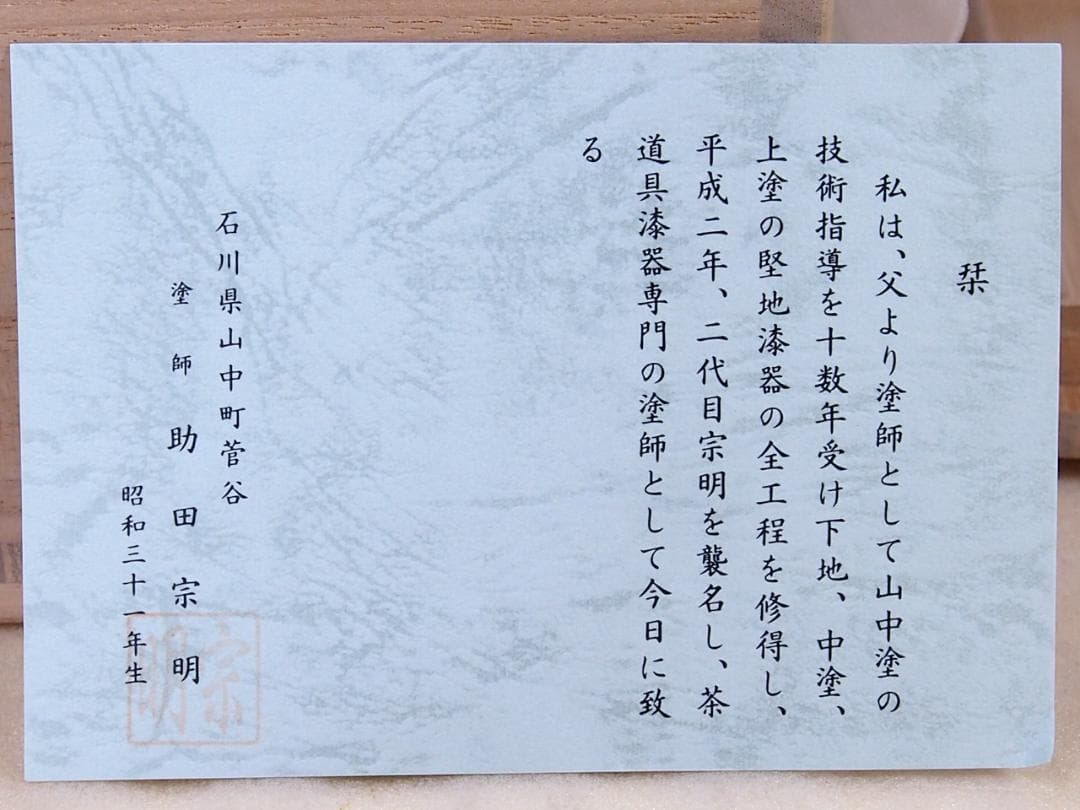 栞
私は、父より塗師として山中塗の
技術指導を十数年受け下地、中塗、
上塗の堅地漆器の全工程を修得し、
平成二年、二代目宗明を襲名し、茶
道具漆器専門の塗師として今日に致
る
石川県山中町菅谷
塗師 助田宗明
昭和三十一年生
宗明